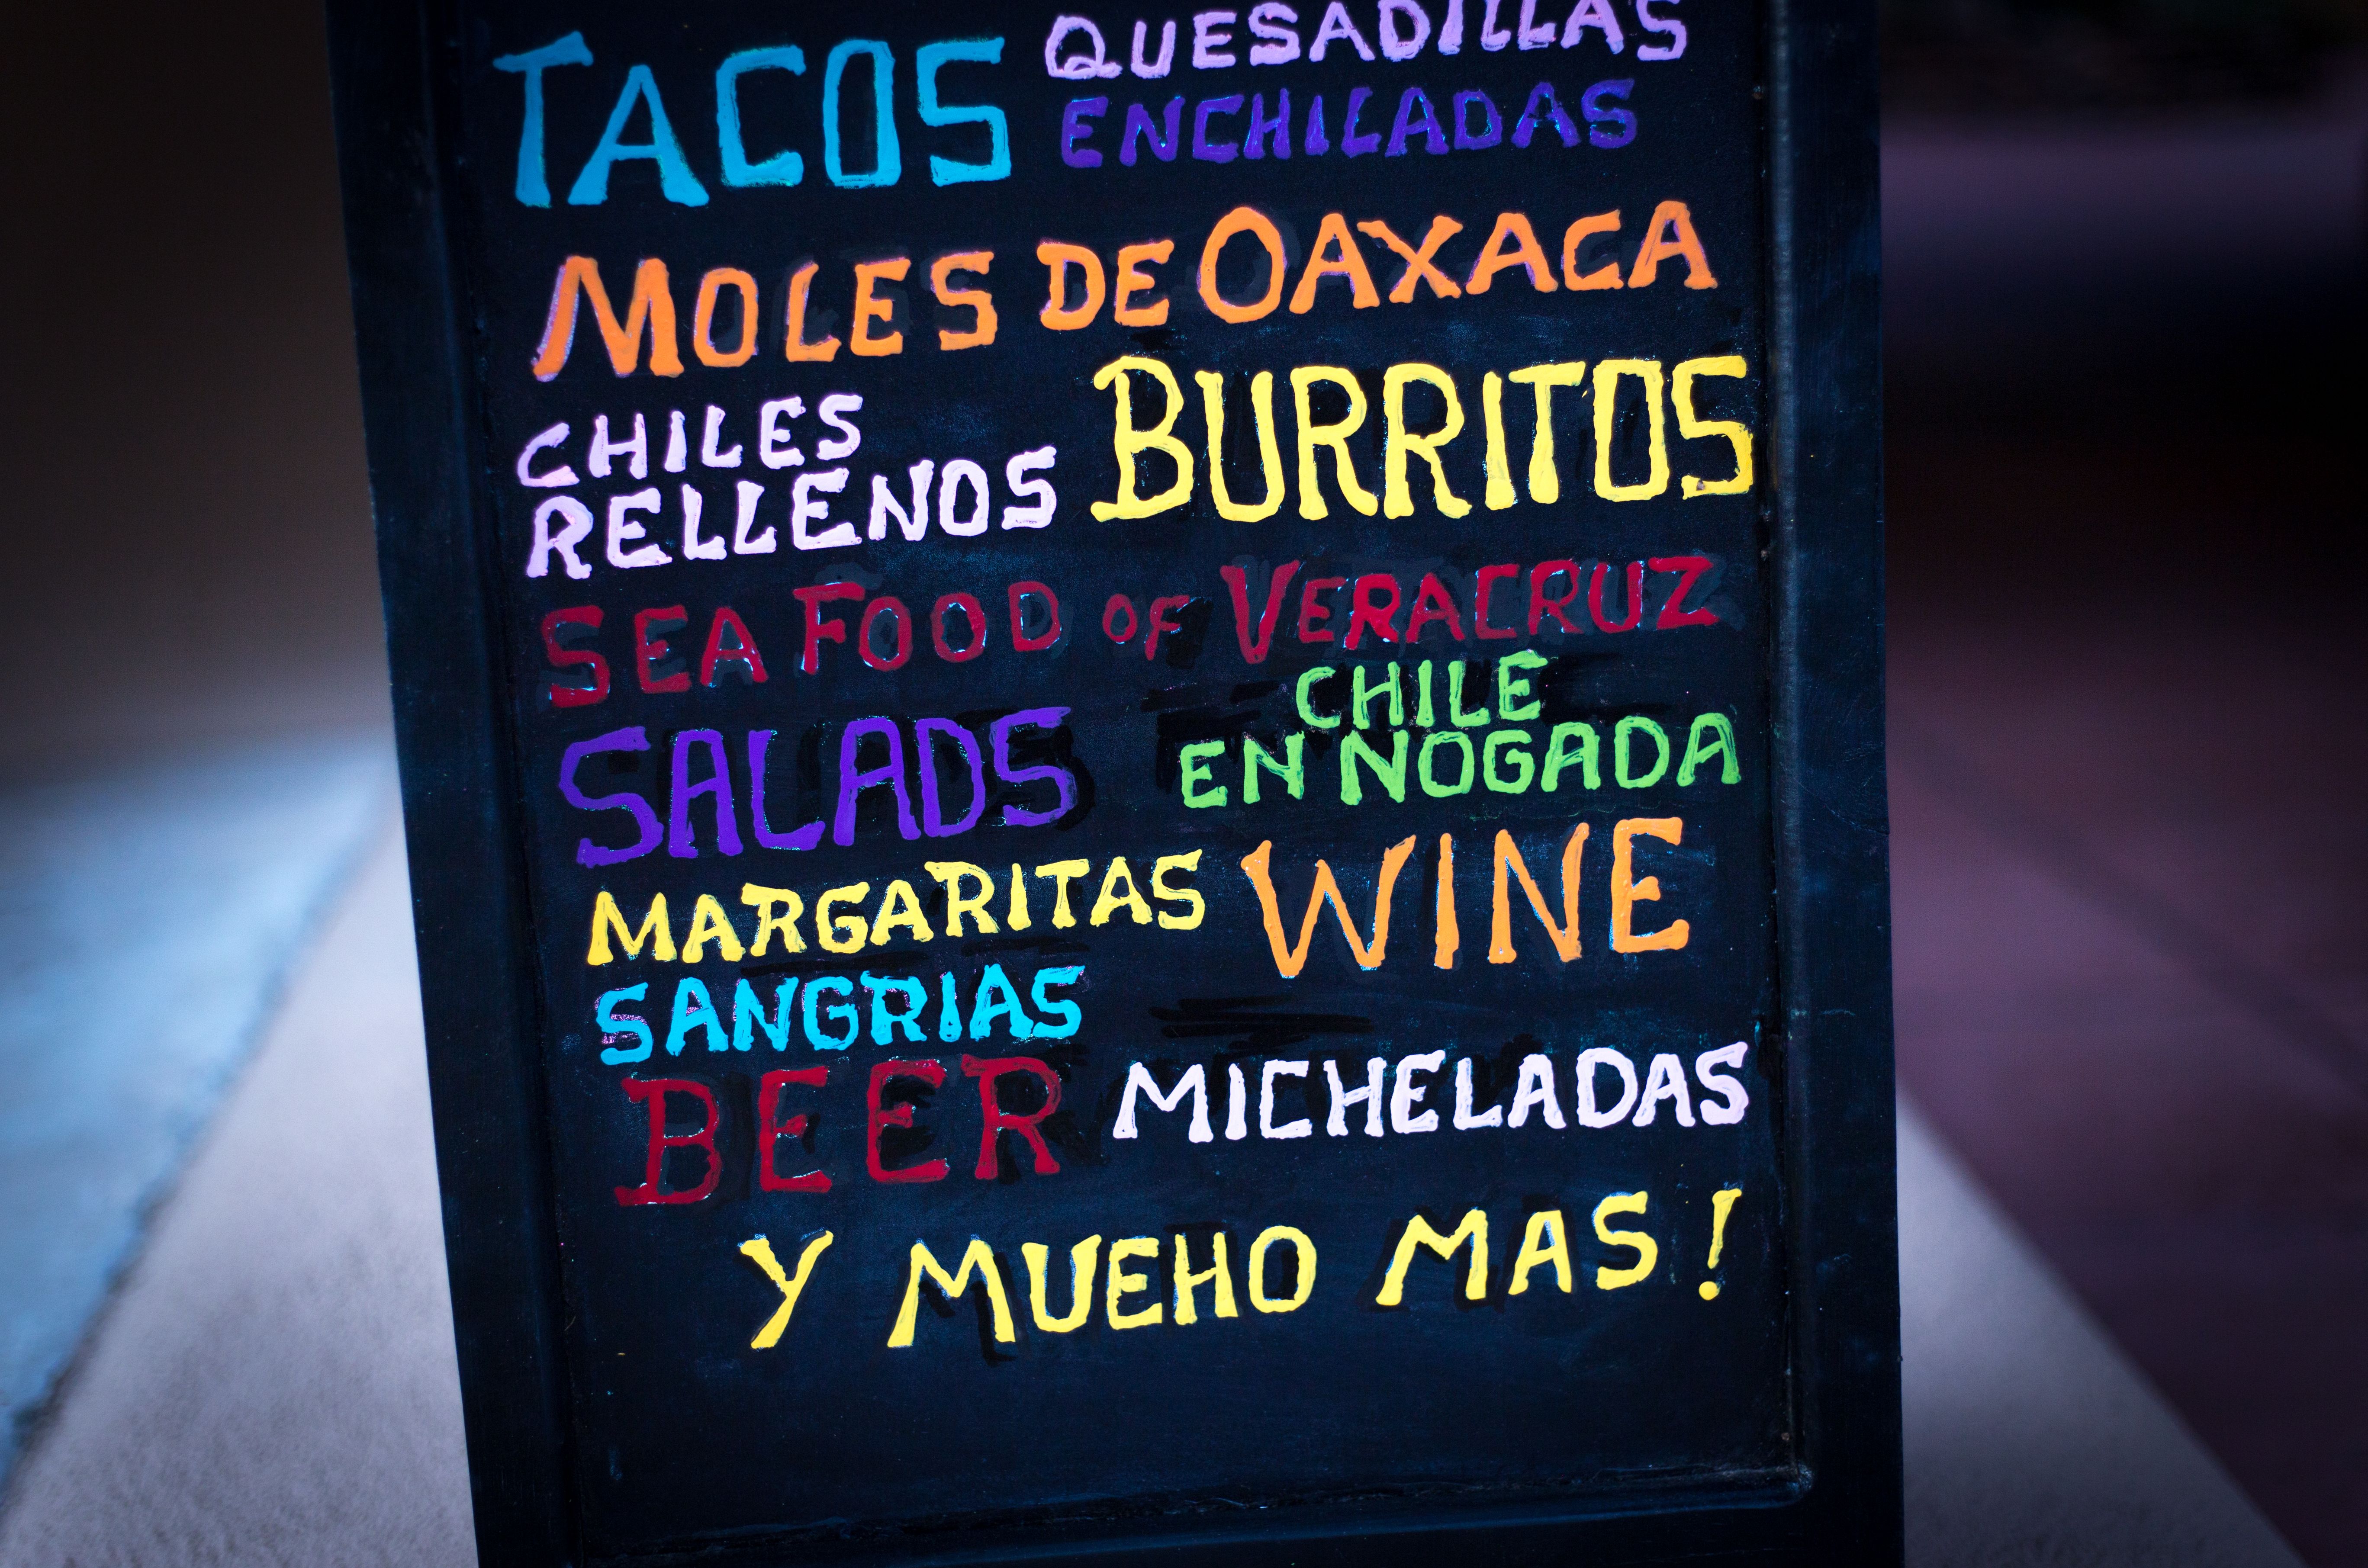 TACOS QUESADILLAS
ENCHILADAS
MOLES DE OAXACA
CHILES
RELLENOS
BURRITOS
SEA FOOD OF VERACRUZ
SALADS
CHILE
EN NOGADA
MARGARITAS WINE
SANGRIAS
BEER MICHELADAS
Y MUEHO MAS!